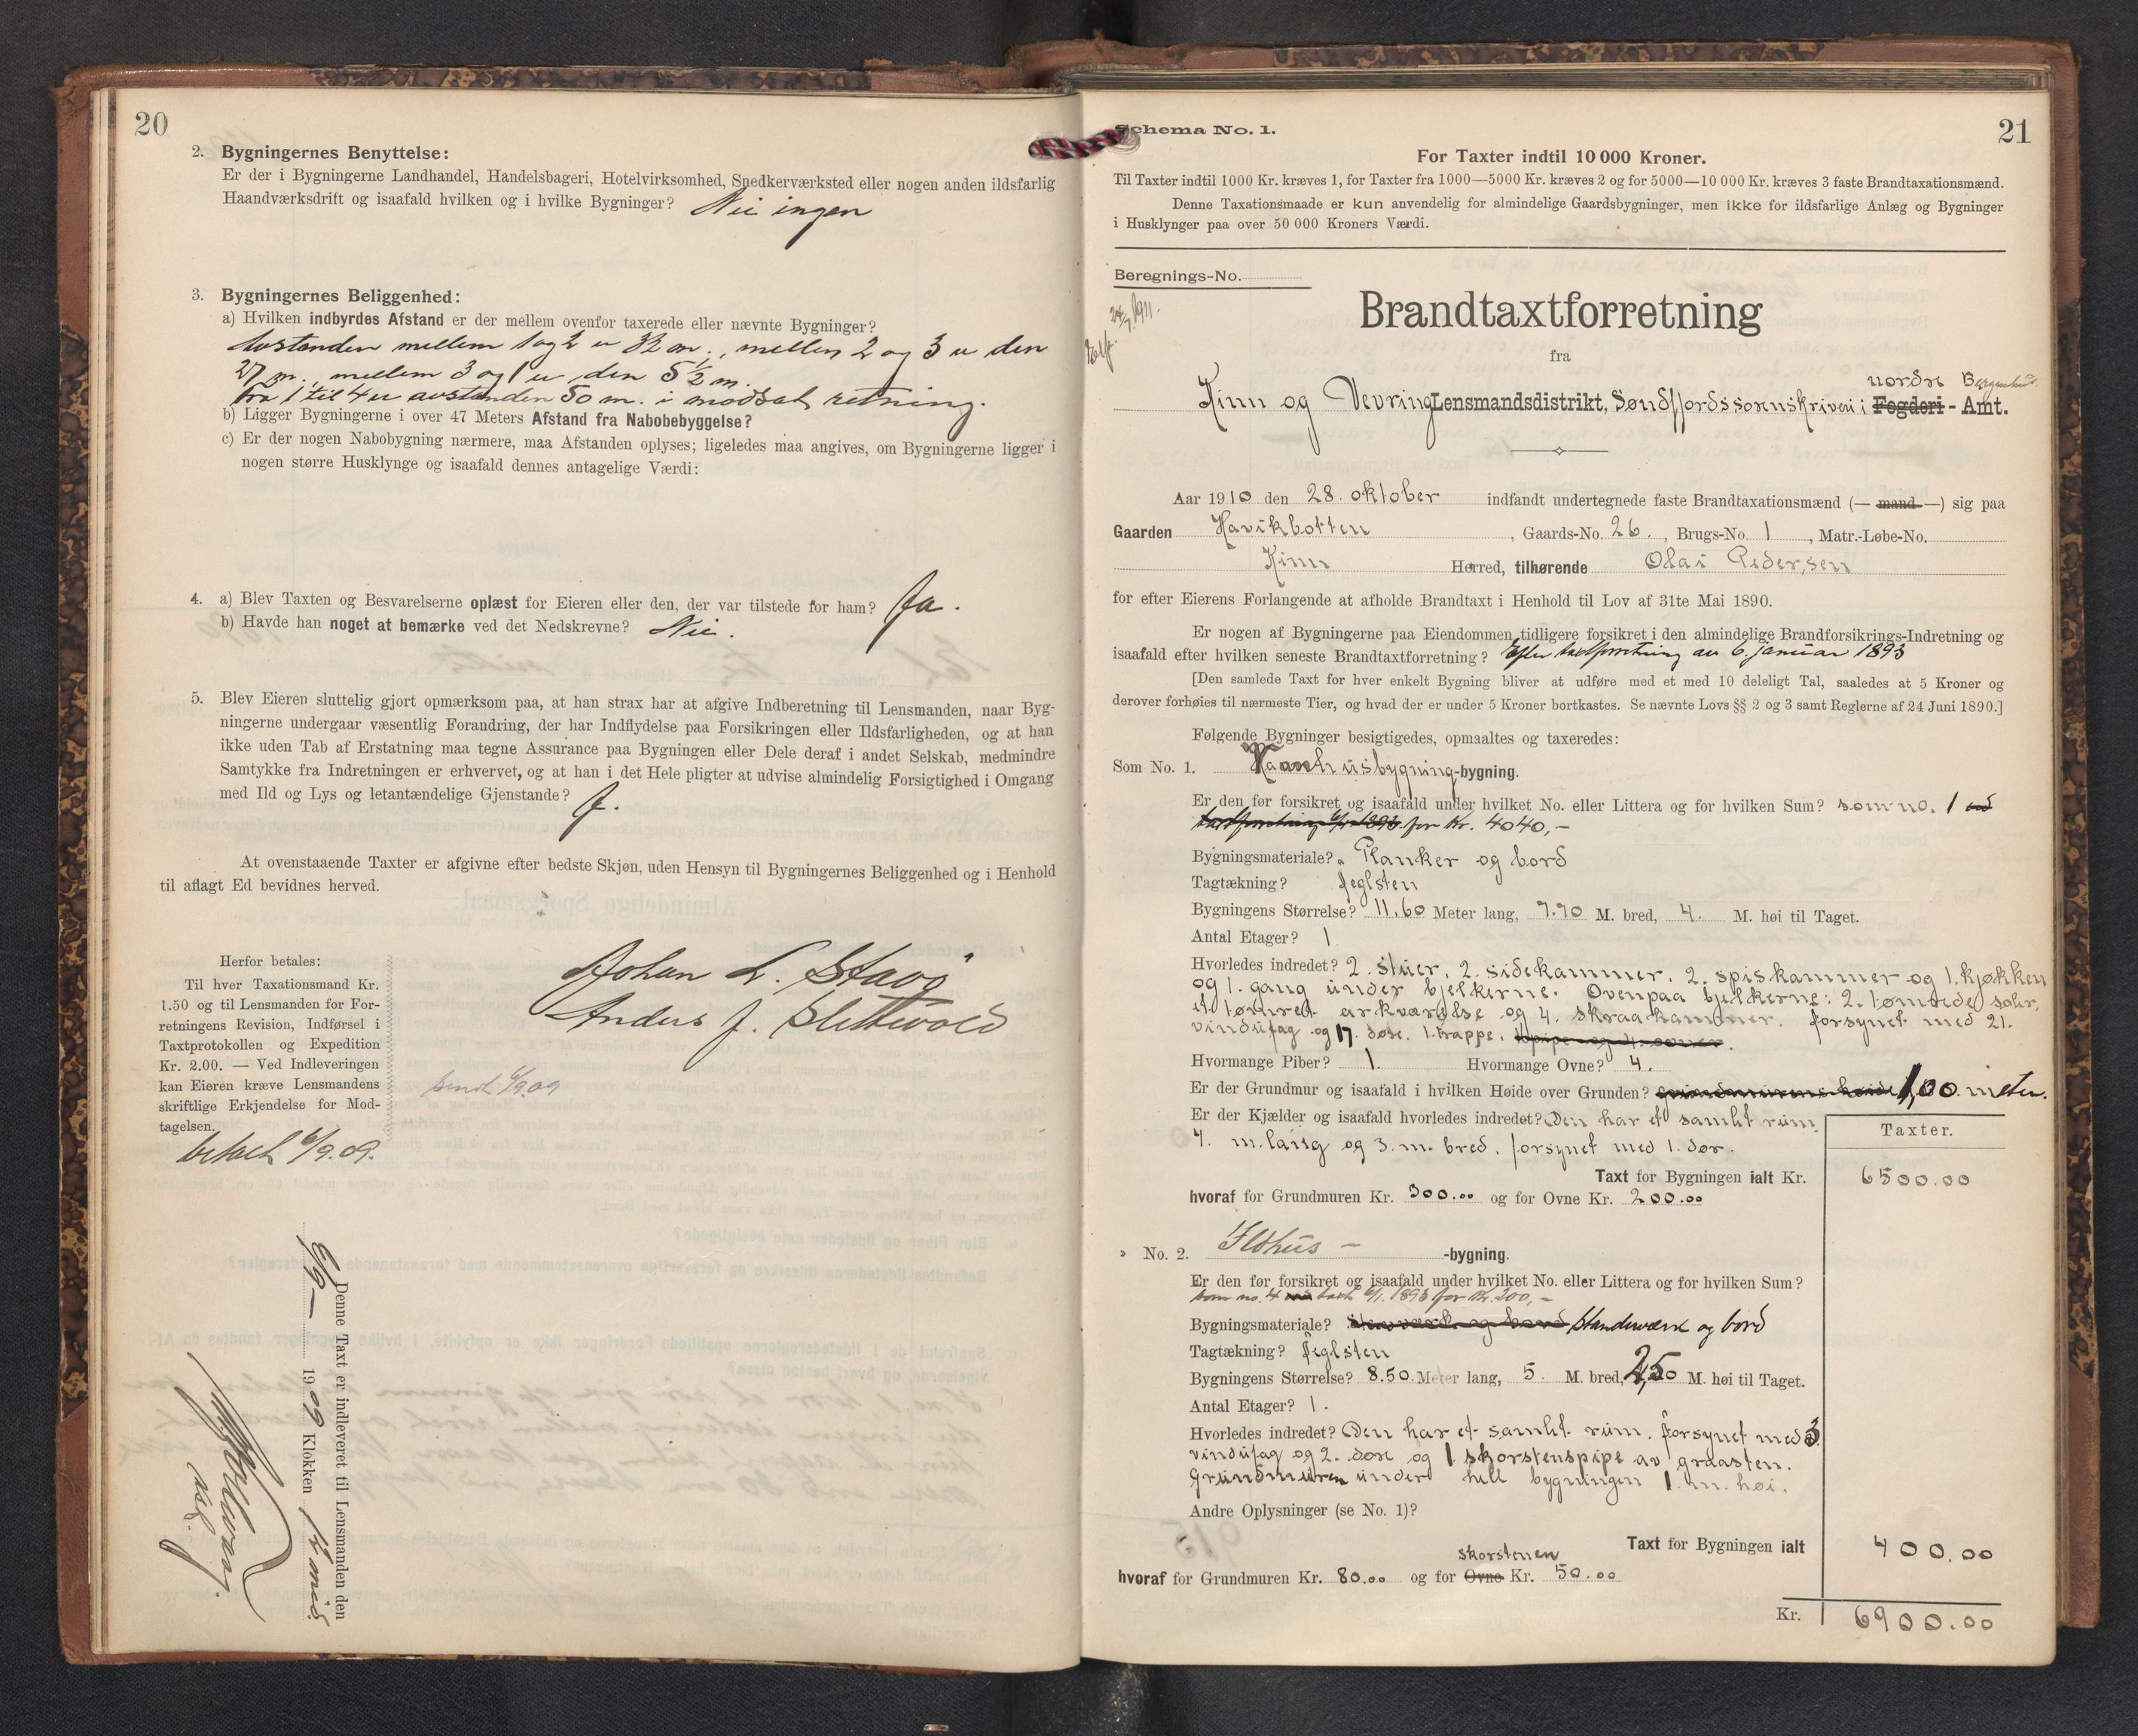 20
2. Bygningernes Benyttelse:
Er der i Bygningerne Landhandel, Handelsbageri, Hotelvirksomhed, Snedkerværksted eller nogen anden ildsfarlig
Haandværksdrift og isaafald hvilken og i hvilke Bygninger? Nei ingen
3. Bygningernes Beliggenhed:
a) Hvilken indbyrdes Afstand er der mellem ovenfor taxerede eller nævnte Bygninger?
Avstanden mellem 1 og 2 er 32 m., mellem 2 og 3 er den
27 m., mellem 3 og 1 er den 5½ m.
fra 1 til 4 er avstanden 50 m. i modsat retning.
b) Ligger Bygningerne i over 47 Meters Afstand fra Nabobebyggelse?
c) Er der nogen Nabobygning nærmere, maa Afstanden oplyses; ligeledes maa angives, om Bygningerne ligger i
nogen større Husklynge og isaafald dennes antagelige Værdi:
4. a) Blev Taxten og Besvarelserne oplæst for Eieren eller den, der var tilstede for ham? Ja.
b) Havde han noget at bemærke ved det Nedskrevne? Nei.
5. Blev Eieren sluttelig gjort opmærksom paa, at han strax har at afgive Indberetning til Lensmanden, naar Byg-
ningerne undergaar væsentlig Forandring, der har Indflydelse paa Forsikringen eller Ildsfarligheden, og at han
ikke uden Tab af Erstatning maa tegne Assurance paa Bygningen eller Dele deraf i andet Selskab, medmindre
Samtykke fra Indretningen er erhvervet, og at han i det Hele pligter at udvise almindelig Forsigtighed i Omgang
med Ild og Lys og letantændelige Gjenstande? J.
At ovenstaaende Taxter er afgivne efter bedste Skjøn, uden Hensyn til Bygningernes Beliggenhed og i Henhold
til aflagt Ed bevidnes herved.
Johan L. Stavø
Anders J. Slettevold
Herfor betales:
Til hver Taxationsmand Kr.
1.50 og til Lensmanden for For-
retningens Revision, Indførsel i
Taxtprotokollen og Expedition
Kr. 2.00. — Ved Indleveringen
kan Eieren kræve Lensmandens
skriftlige Erkjendelse for Mod-
tagelsen.
sendt 6/9.09
betalt 6/9.09.
Denne Taxt er indleveret til Lensmanden den
6/9 — 1909 Klokken 12 mid.
21
Schema No. 1.
For Taxter indtil 10 000 Kroner.
Til Taxter indtil 1000 Kr. kræves 1, for Taxter fra 1000—5000 Kr. kræves 2 og for 5000—10 000 Kr. kræves 3 faste Brandtaxationsmænd.
Denne Taxationsmaade er kun anvendelig for almindelige Gaardsbygninger, men ikke for ildsfarlige Anlæg og Bygninger
i Husklynger paa over 50 000 Kroners Værdi.
Beregnings-No.
Brandtaxtforretning
fra
nordre Bergenhus
Kinn og Vevring Lensmandsdistrikt, Søndfjords sorenskriveri i Fogderi - Amt.
Aar 1910 den 28. oktober indfandt undertegnede faste Brandtaxationsmænd (— mand —) sig paa
Gaarden Havikbotten, Gaards-No. 26., Brugs-No. 1, Matr.-Løbe-No.
Kinn Herred, tilhørende Olai Pedersen
for efter Eierens Forlangende at afholde Brandtaxt i Henhold til Lov af 31te Mai 1890.
Er nogen af Bygningerne paa Eiendommen tidligere forsikret i den almindelige Brandforsikrings-Indretning og
isaafald efter hvilken seneste Brandtaxtforretning? Efter taxtforretning av 6. januar 1893
[Den samlede Taxt for hver enkelt Bygning bliver at udføre med et med 10 deleligt Tal, saaledes at 5 Kroner og
derover forhøies til nærmeste Tier, og hvad der er under 5 Kroner bortkastes. Se nævnte Lovs §§ 2 og 3 samt Reglerne af 24 Juni 1890.]
Følgende Bygninger besigtigedes, opmaaltes og taxeredes:
Som No. 1. Vaanehusbygning-bygning.
Er den før forsikret og isaafald under hvilket No. eller Littera og for hvilken Sum? som no. 1 ved
taxtforretning 6/1 1893 for Kr. 4040,-
Bygningsmateriale? Planker og bord
Tagtækning? Teglsten
Bygningens Størrelse? 11.60 Meter lang, 7.70 M. bred, 4. M. høi til Taget.
Antal Etager? 1
Hvorledes indredet? 2. stuer, 2. sidekammer. 2. spiskammer og 1. kjøkken
og 1. gang under bjelkerne. Ovenpaa bjelkerne: 2. tømrede saler,
et tømret arkværelse og 4. skraakammer. forsynet med 21.
vindufag og 17. døre. 1. trappe.
Hvormange Piber? 1. Hvormange Ovne? 4.
Er der Grundmur og isaafald i hvilken Høide over Grunden? grundmurens høide 1,00 meter.
Er der Kjælder og isaafald hvorledes indredet? Den har et samlet rum,
4. m. lang og 3. m. bred, forsynet med 1. dør.
Taxter.
Taxt for Bygningen ialt Kr. 6500.00
hvoraf for Grundmuren Kr. 300.00 og for Ovne Kr. 200.00
» No. 2. Ildhus - -bygning.
Er den før forsikret og isaafald under hvilket No. eller Littera og for hvilken Sum?
som no. 4 ved taxt 6/1. 1893 for Kr. 200,-
Bygningsmateriale? Standeværk og bord
Tagtækning? Teglsten
Bygningens Størrelse? 8.50 Meter lang, 5. M. bred, 2,50 M. høi til Taget.
Antal Etager? 1.
Hvorledes indredet? Den har et samlet rum. forsynet med 3
vindufag og 2. døre og 1 skorstenspipe av graasten.
Grundmuren under hell bygningen 1. m. høi.
Andre Oplysninger (se No. 1)?
Taxt for Bygningen ialt 400.00
skorstenen
hvoraf for Grundmuren Kr. 80.00 og for Ovne Kr. 50.00
Kr. 6900.00